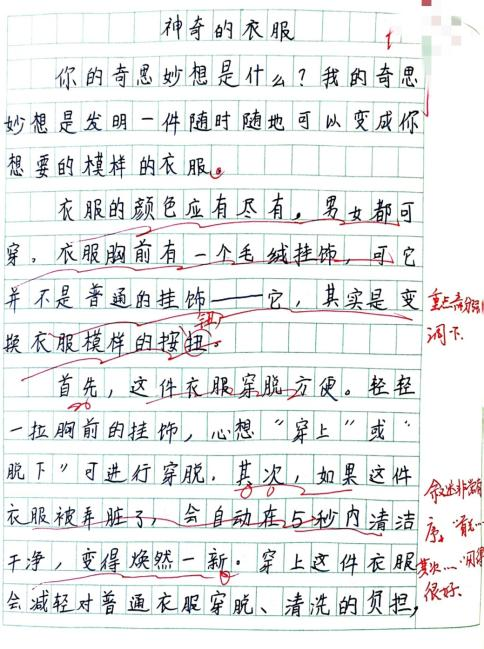 神奇的衣服
你的奇思妙想是什么？我的奇思
妙想是发明一件随时随地可以变成你
想要的模样的衣服。
衣服的颜色应有尽有，男女都可
穿。衣服胸前有一个毛绒挂饰，可它
并不是普通的挂饰——它，其实是变
换衣服模样的按扭。
钮
首先，这件衣服穿脱方便。轻轻
一拉胸前的挂饰，心想“穿上”或“
脱下”可进行穿脱。其次，如果这件
衣服被弄脏了，会自动在5秒内清洁
干净，变得焕然一新。穿上这件衣服
会减轻对普通衣服穿脱、清洗的负担，
叙述非常有
序，“首先…
其次…”用得
很好。